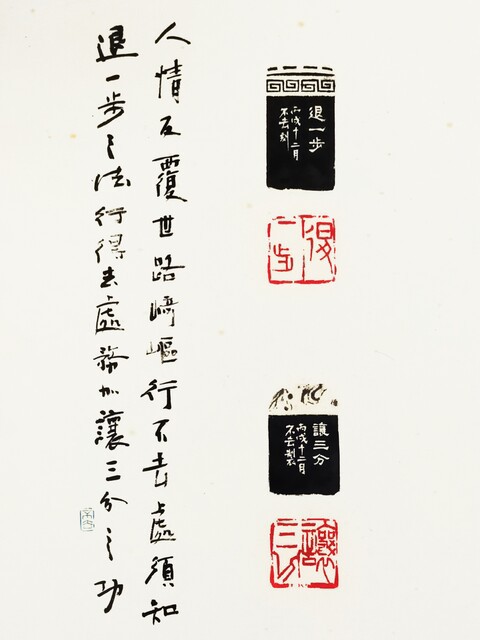 退一步
丙戌十二月
退一步
讓三分
丙戌十二月
讓三分
人情反覆世路崎嶇行不去處須知
退一步之法行得去處務加讓三分之功